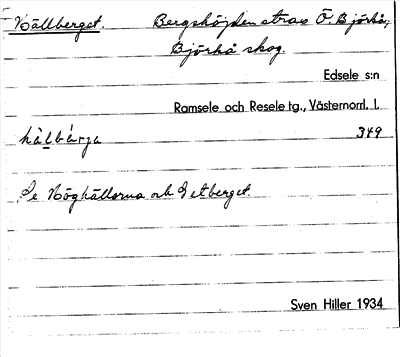 Hällberget. Bergshöjden strax Ö. Björkå,
Björkå skog.
Edsele s:n
Ramsele och Resele tg., Västernorrl. l.
hä̀lbárja 349
Se Höghällorna och Getberget.
Sven Hiller 1934